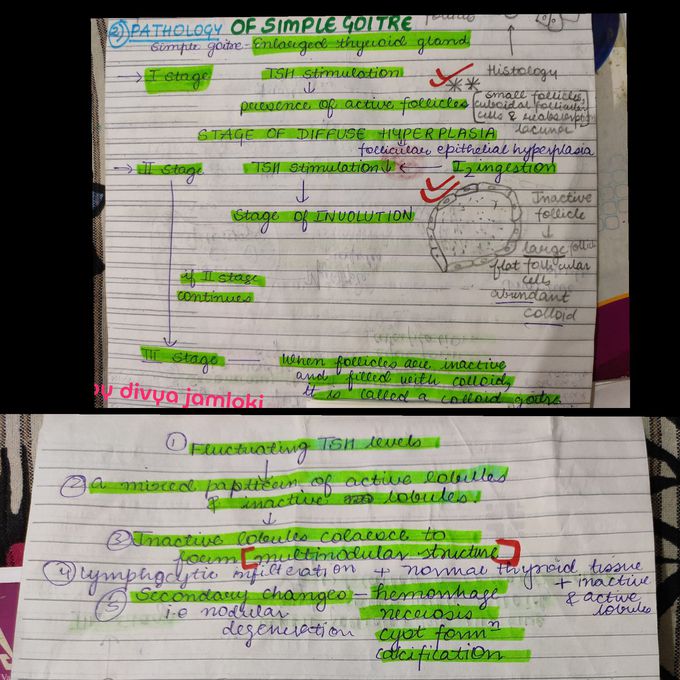 ② PATHOLOGY OF SIMPLE GOITRE
Simple goitre - Enlarged thyroid gland
→ I stage TSH stimulation
↓
presence of active follicles
** Histology
small follicles,
cuboidal follicular
cells & reabsorption
lacunae
STAGE OF DIFFUSE HYPERPLASIA
↓
follicular epithelial hyperplasia
→ II stage TSH stimulation↓ ← I2 ingestion
↓
Stage of INVOLUTION
Inactive
follicle
↓
large
flat follicular
cells
abundant
colloid
if II stage
continues
III stage — when follicles are inactive
and filled with colloid,
it is called a colloid goitre
by divya jamloki
① Fluctuating TSH levels
↓
② a mixed pattern of active lobules
& inactive lobules
↓
③ Inactive lobules coalesce to
form [multinodular structure]
④ lymphocytic infilteration + normal thyroid tissue
+ inactive
& active
lobules
⑤ Secondary changes - hemorrhage
i.e nodular necrosis
degeneration cyst formⁿ
calcification